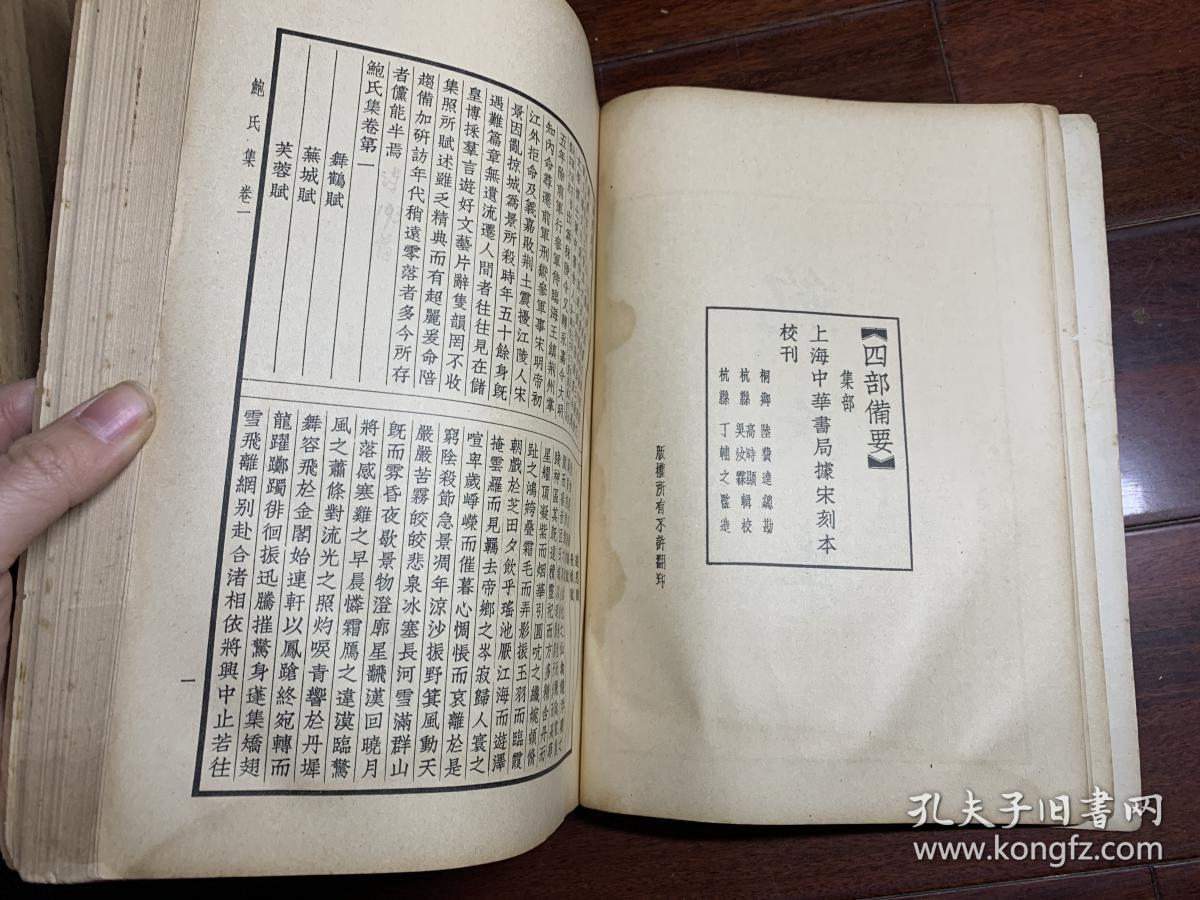 【四部備要】
集部
上海中華書局據宋刻本
校刊
桐鄉 陸費逵總勘
杭縣 高時顯輯校
杭縣 吳汝霖輯校
杭縣 丁輔之監造
版權所有不許翻印
五年除前軍行參軍侍臨海王鎮荊州掌
知內命尋遷前軍刑獄參軍事宋明帝初
江外拒命及義嘉敗荊土震擾江陵人宋
景因亂掠城為景所殺時年五十餘身既
遇難篇章無遺流遷人間者往往見在儲
皇博採羣言遊好文藝片辭隻韻罔不收
集照所賦述雖乏精典而有超麗爰命陪
趨備加研訪年代稍遠零落者多今所存
者儻能半焉
鮑氏集卷第一
舞鶴賦
蕪城賦
芙蓉賦
星燿頂凝紫而烟華引圓吭之纖婉頓脩
趾之鴻姱疊霜毛而弄影振玉羽而臨霞
朝戲於芝田夕飲乎瑤池厭江海而遊澤
掩雲羅而見羈去帝鄉之岑寂歸人寰之
喧卑歲崢嶸而催暮心惆悵而哀離於是
窮陰殺節急景凋年涼沙振野箕風動天
嚴嚴苦霧皎皎悲泉冰塞長河雪滿群山
既而雰昏夜歇景物澄廓星翻漢回曉月
將落感寒雞之早晨憐霜鴈之違漠臨驚
風之蕭條對流光之照灼唳青響於丹墀
舞容飛於金閣始連軒以鳳蹌終宛轉而
龍躍躑躅徘徊振迅騰摧驚身蓬集矯翅
雪飛離網別赴合渚相依將興中止若往
鮑氏集 卷一
一
孔夫子旧书网
www.kongfz.com